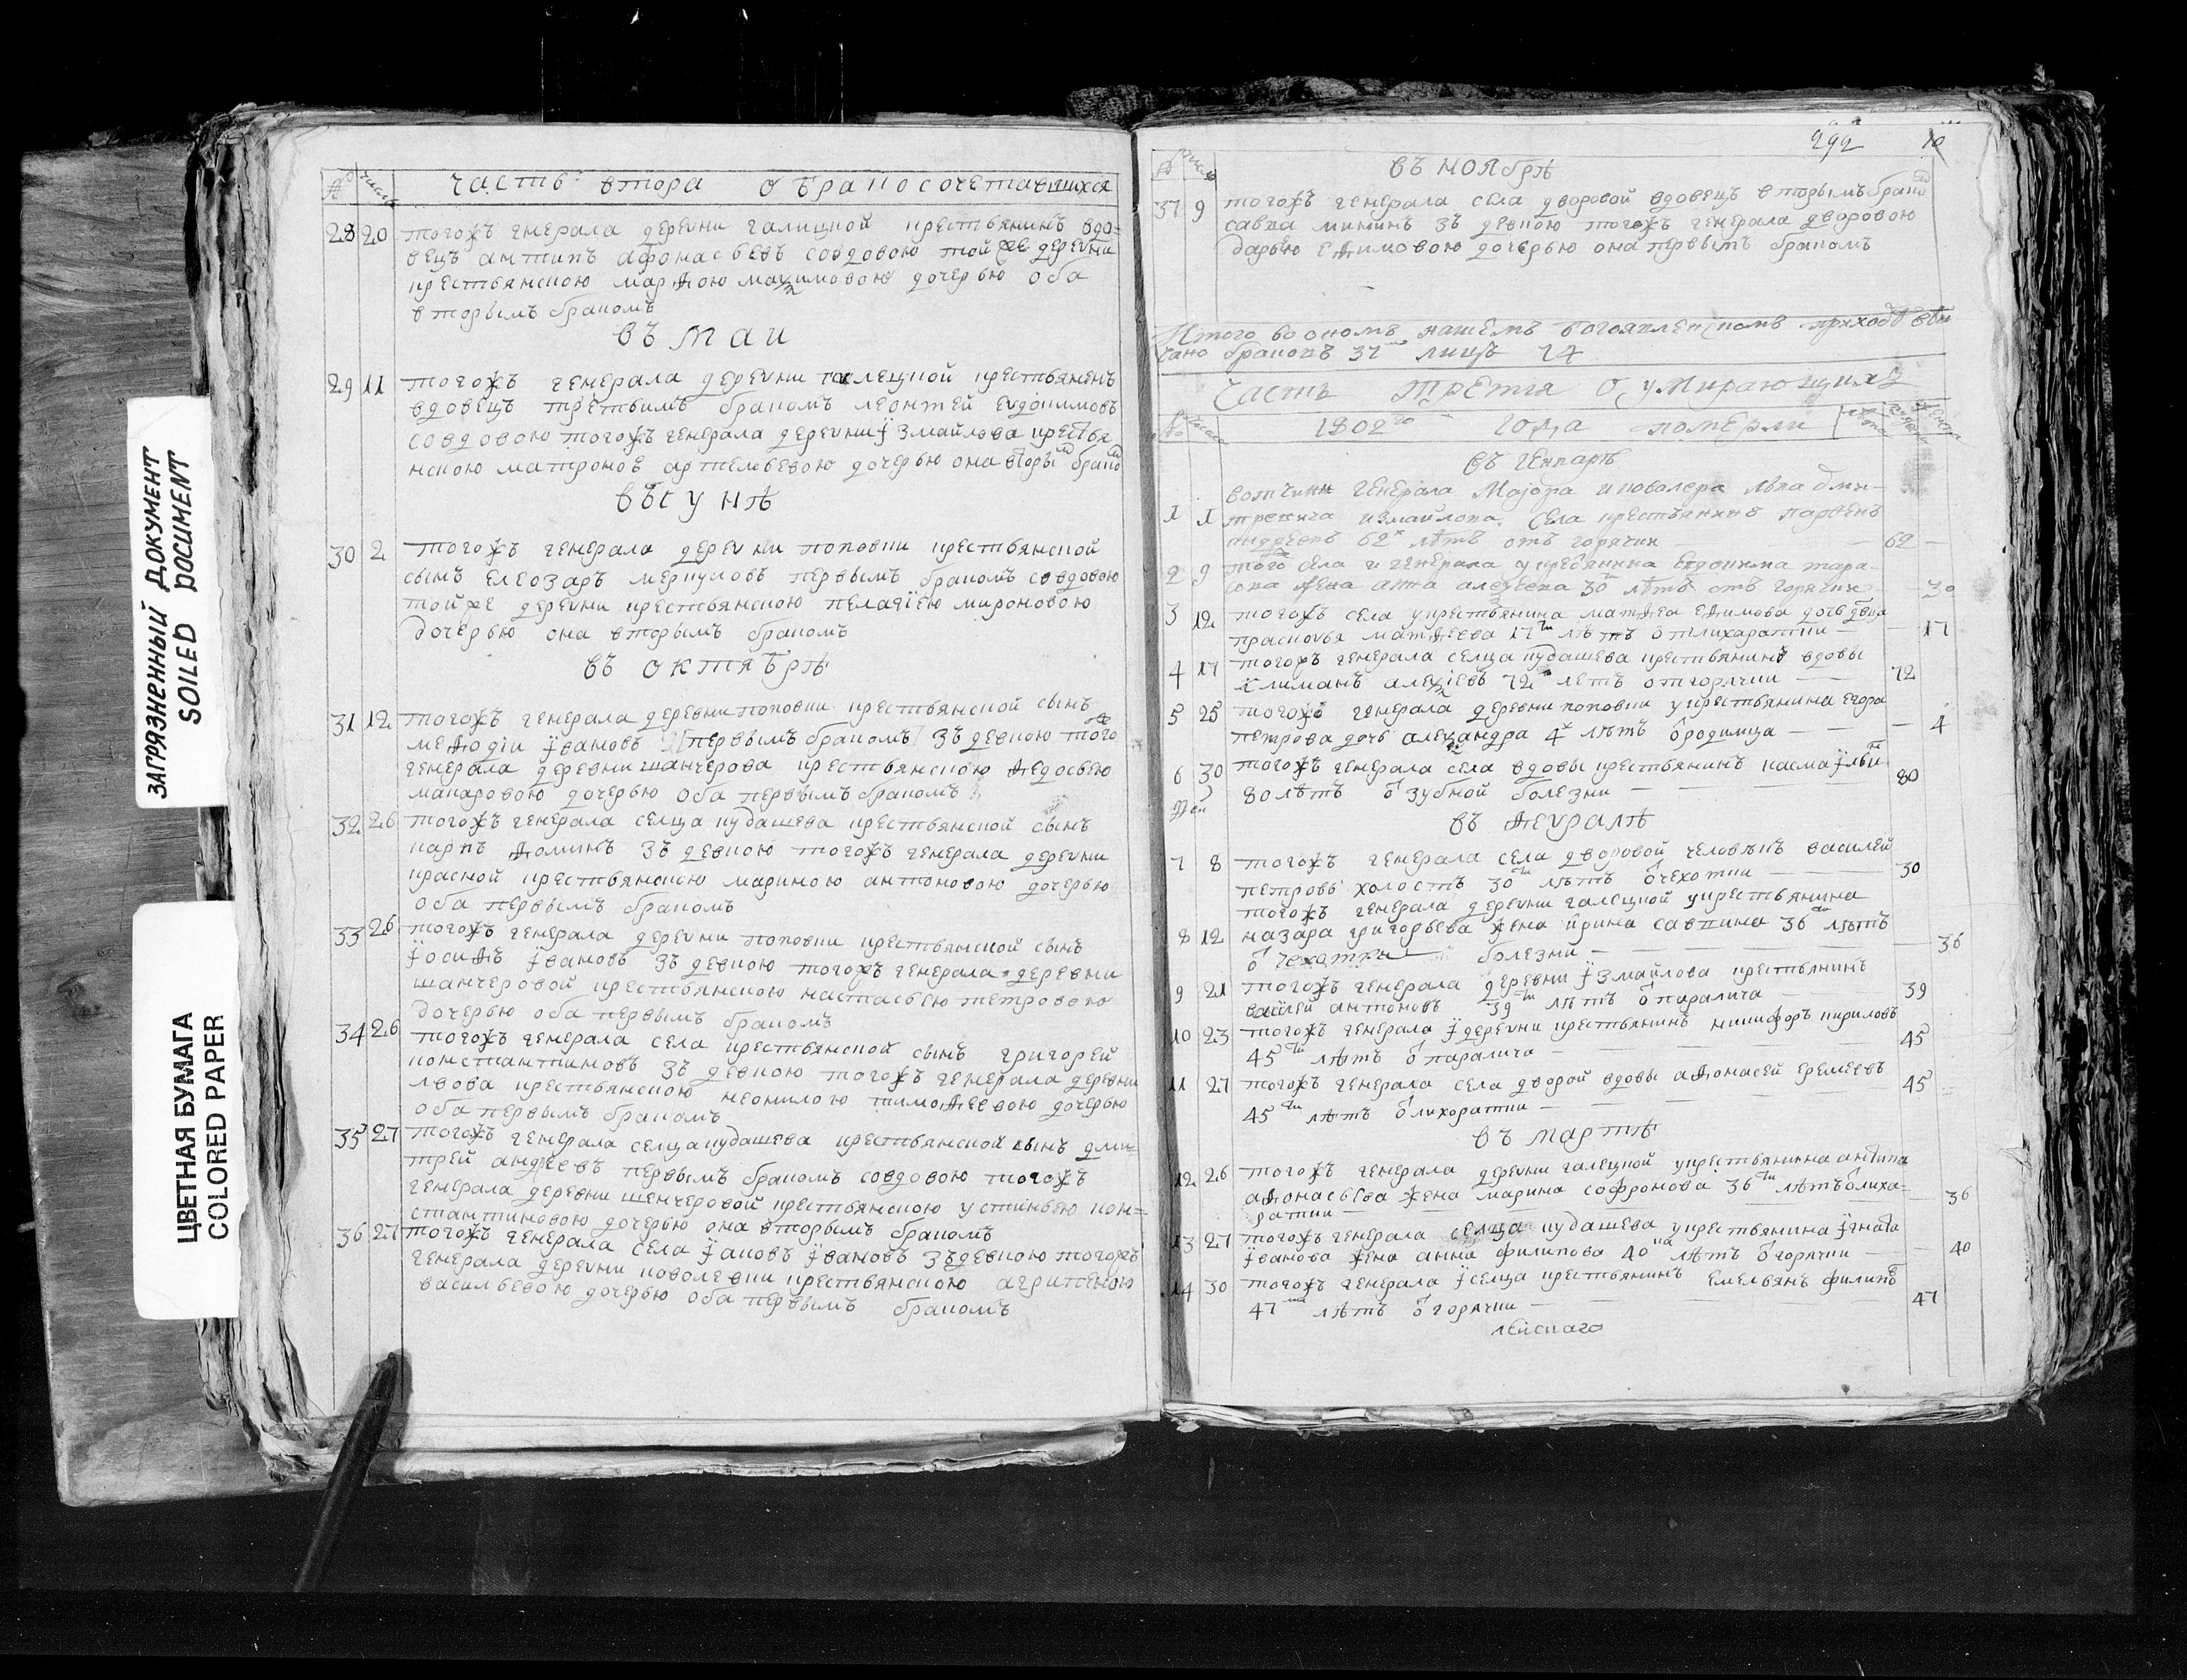 ЗАГРЯЗНЕННЫЙ ДОКУМЕНТ
SOILED DOCUMENT
ЦВЕТНАЯ БУМАГА
COLORED PAPER
№ число
часть втора о бракосочетавшихся
28 20 тогожъ генерала деревни галицкой крестьянинъ вдо=
вецъ антипъ афонасьевъ совдовою той же деревни
крестьянскою марѳою максимовою дочерью оба
вторымъ бракомъ
въ маи
29 11 тогожъ генерала деревни галецкой крестьяненъ
вдовецъ третьимъ бракомъ леонтей евдокимовъ
совдовою тогожъ генерала деревни Ізмайлова крестья
нскою матроною артемьевою дочерью она вторымъ бракомъ
въ іунѣ
30 2 тогожъ генерала деревни поповки крестьянской
сынъ елеозаръ меркуловъ первымъ бракомъ совдовою
тойже деревни крестьянскою пелагіею мироновою
дочерью она вторымъ бракомъ
въ октябрѣ
31 12 тогожъ генерала деревни поповки крестьянской сынъ
меѳодіи Івановъ [первымъ бракомъ] зъ девкою тогоже
генерала деревни шанчерова крестьянскою ѳедосьею
макаровою дочерью оба первымъ бракомъ
32 26 тогожъ генерала селца кудашева крестьянской сынъ
карпъ ѳоминъ зъ девкою тогожъ генерала деревни
красной крестьянскою мариною антоновою дочерью
оба первымъ бракомъ
33 26 тогожъ генерала деревни поповки крестьянской сынъ
Іосиѳъ Івановъ зъ девкою тогожъ генерала деревни
шанчеровой крестьянскою настасьею петровою
дочерью оба первымъ бракомъ
34 26 тогожъ генерала села крестьянской сынъ григорей
константиновъ зъ девкою тогожъ генерала деревни
львова крестьянскою неонилою тимоѳеевою дочерью
оба первымъ бракомъ
35 27 тогожъ генерала селца кудашева крестьянской сынъ дми
трей андреевъ первымъ бракомъ совдовою тогожъ
генерала деревни шенчеровой крестьянскою устиньею кон=
стантиновою дочерью она вторымъ бракомъ
36 27 тогожъ генерала села Іаковъ Івановъ зъдевкою тогожъ
генерала деревни ковалевки крестьянскою агрипеною
васильевою дочерью оба первымъ бракомъ
292 10
№ число
въ ноябрѣ
37 9 тогожъ генерала села дворовой вдовецъ вторымъ бракомъ
савва мининъ зъ девкою тогожъ генерала дворовою
дарьею еѳимовою дочерью она первымъ бракомъ
Итого во ономъ нашемъ богоявленскомъ приходѣ вѣн
чано браковъ 37 лицъ 74
Часть третія о умирающихъ
1802го года померли
въ генварѣ
вотчины генерала Маіора и ковалера лва дми=
1 1 треевича измайлова села крестьянинъ парфенъ
андреевъ 62х лѣтъ отъ горячки — 62
2 9 того села и генерала у кресянина евдокима тара
сова жена анна алексеева 30ти лѣтъ отъ горячки 30
3 12 тогожъ села укрестьянина матѳеа еѳимова дочь девка
прасковья матѳеева 17ти лѣтъ отлихаратки — 17
4 17 тогожъ генерала селца кудашева крестьянинъ вдовы
климанъ алексіевъ 72 летъ отгорячки — 72
5 25 тогожъ генерала деревни поповки укрестьянина егора
петрова дочь александра 4х лѣтъ ѿродимца — 4
6 30 тогожъ генерала села вдовы крестьянинъ касма Ільинъ
80 лѣтъ ѿ зубной болезни — 80
въ ѳевралѣ
7 8 тогожъ генерала села дворовой человѣкъ василей
петровъ холостъ 30ти лѣтъ ѿчехотки — 30
тогожъ генерала деревни галецкой укрестьянина
8 12 назара григорьева жена ирина саввина 36ти лѣтъ
ѿ чехотки болезни — 36
9 21 тогожъ генерала деревни Ізмайлова крестьянинъ
васілей антоновъ 39ти лѣтъ ѿпаралича — 39
10 23 тогожъ генерала Ідеревни крестьянинъ никифоръ кириловъ
45ти лѣтъ ѿ паралича — 45
11 27 тогожъ генерала села дворой вдовы аѳонасей еремеевъ
45ти лѣтъ ѿ лихоратки — 45
въ мартѣ
12 26 тогожъ генерала деревни галецкой укрестьянина антипа
аѳонасьева жена марина софронова 36ти лѣтъ ѿлиха=
ратки — 36
13 27 тогожъ генерала селца кудашева укрестьянина Ігната
Іванова жена анна филипова 40 лѣтъ ѿгорячки — 40
14 30 тогожъ генерала Іселца крестьянинъ емельянъ филиповъ
47 лѣтъ ѿгорячки — 47
лейскаго